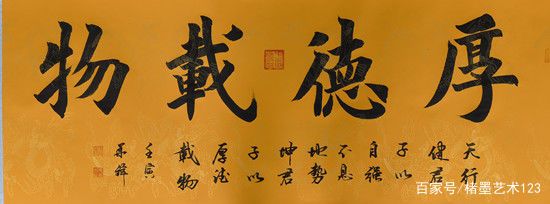 厚德載物
天行
健君
子以
自強
不息
地勢
坤君
子以
厚德
載物
壬寅
百家号/楮墨艺术123